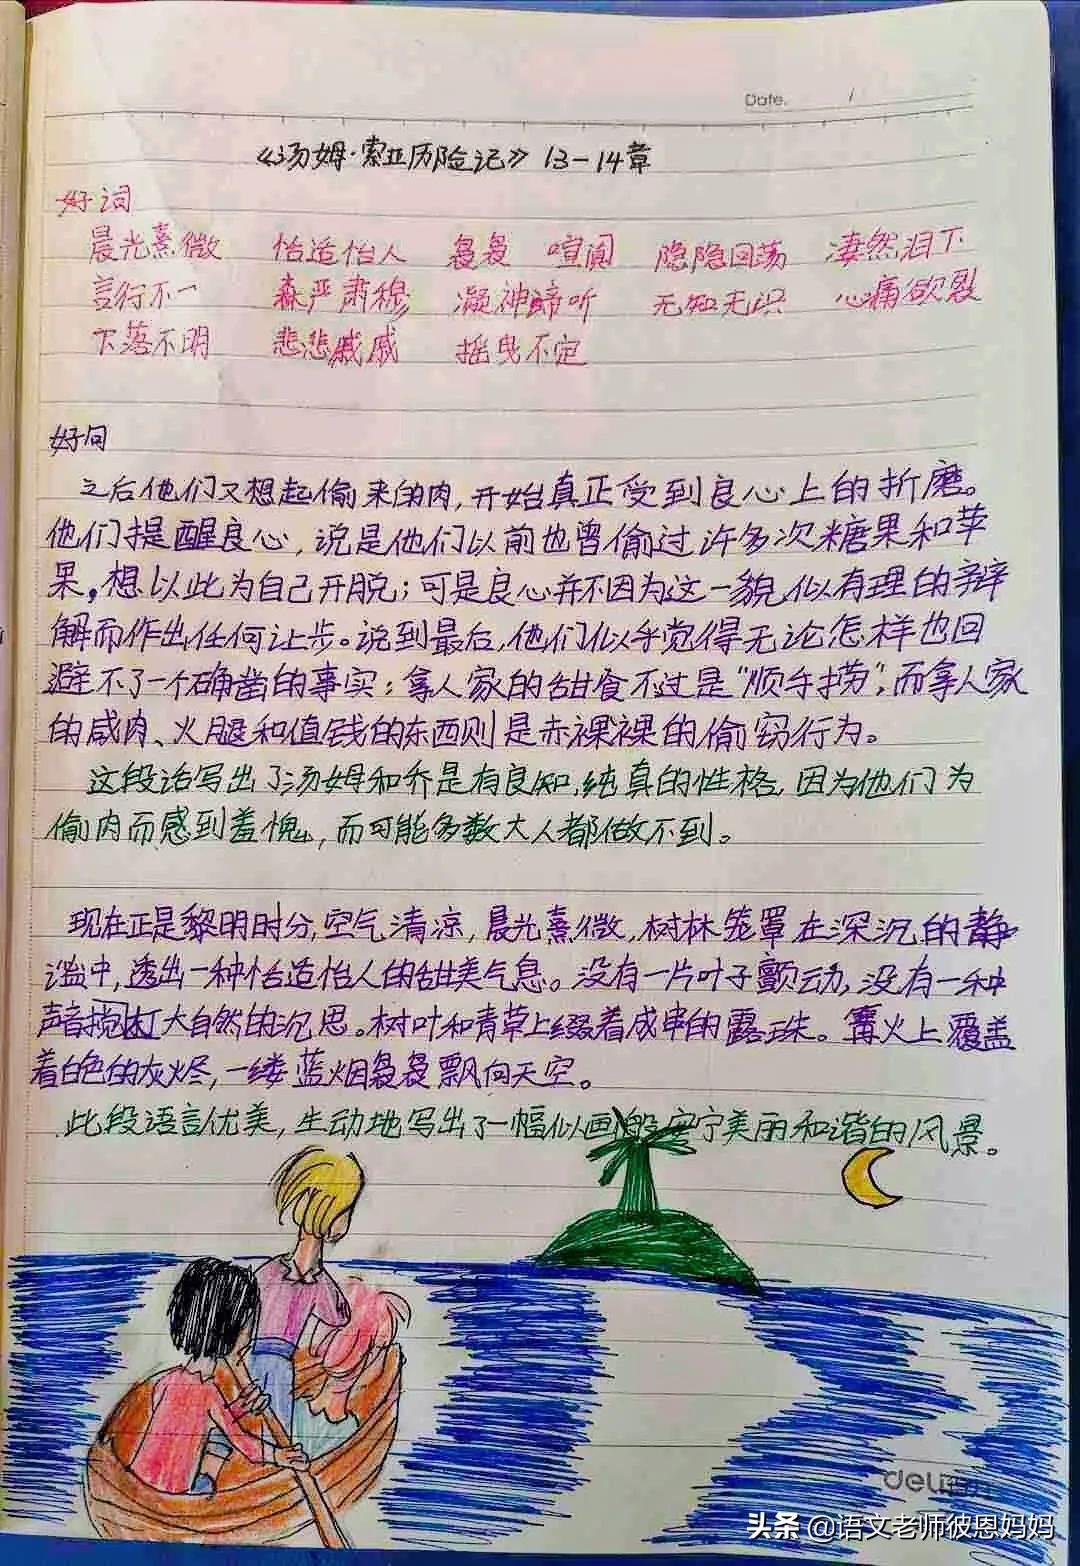 Date.      /
《汤姆·索亚历险记》13-14章
好词
晨光熹微 怡适怡人 袅袅 喧阗 隐隐回荡 凄然泪下
言行不一 森严肃穆 凝神谛听 无知无识 心痛欲裂
下落不明 悲悲戚戚 摇曳不定
好句
之后他们又想起偷来的肉,开始真正受到良心上的折磨。
他们提醒良心,说是他们以前也曾偷过许多次糖果和苹
果,想以此为自己开脱;可是良心并不因为这一貌似有理的辩
解而作出任何让步。说到最后,他们似乎觉得无论怎样也回
避不了一个确凿的事实:拿人家的甜食不过是“顺手捞”,而拿人家
的咸肉、火腿和值钱的东西则是赤裸裸的偷窃行为。
这段话写出了汤姆和乔是有良知,纯真的性格,因为他们为
偷肉而感到羞愧,而可能多数大人都做不到。
现在正是黎明时分,空气清凉,晨光熹微,树林笼罩在深沉的静
谧中,透出一种怡适怡人的甜美气息。没有一片叶子颤动,没有一种
声音搅扰大自然的沉思。树叶和青草上缀着成串的露珠。篝火上覆盖
着白色的灰烬,一缕蓝烟袅袅飘向天空。
此段语言优美,生动地写出了一幅似画般安宁美丽和谐的风景。
deli
头条 @语文老师彼恩妈妈